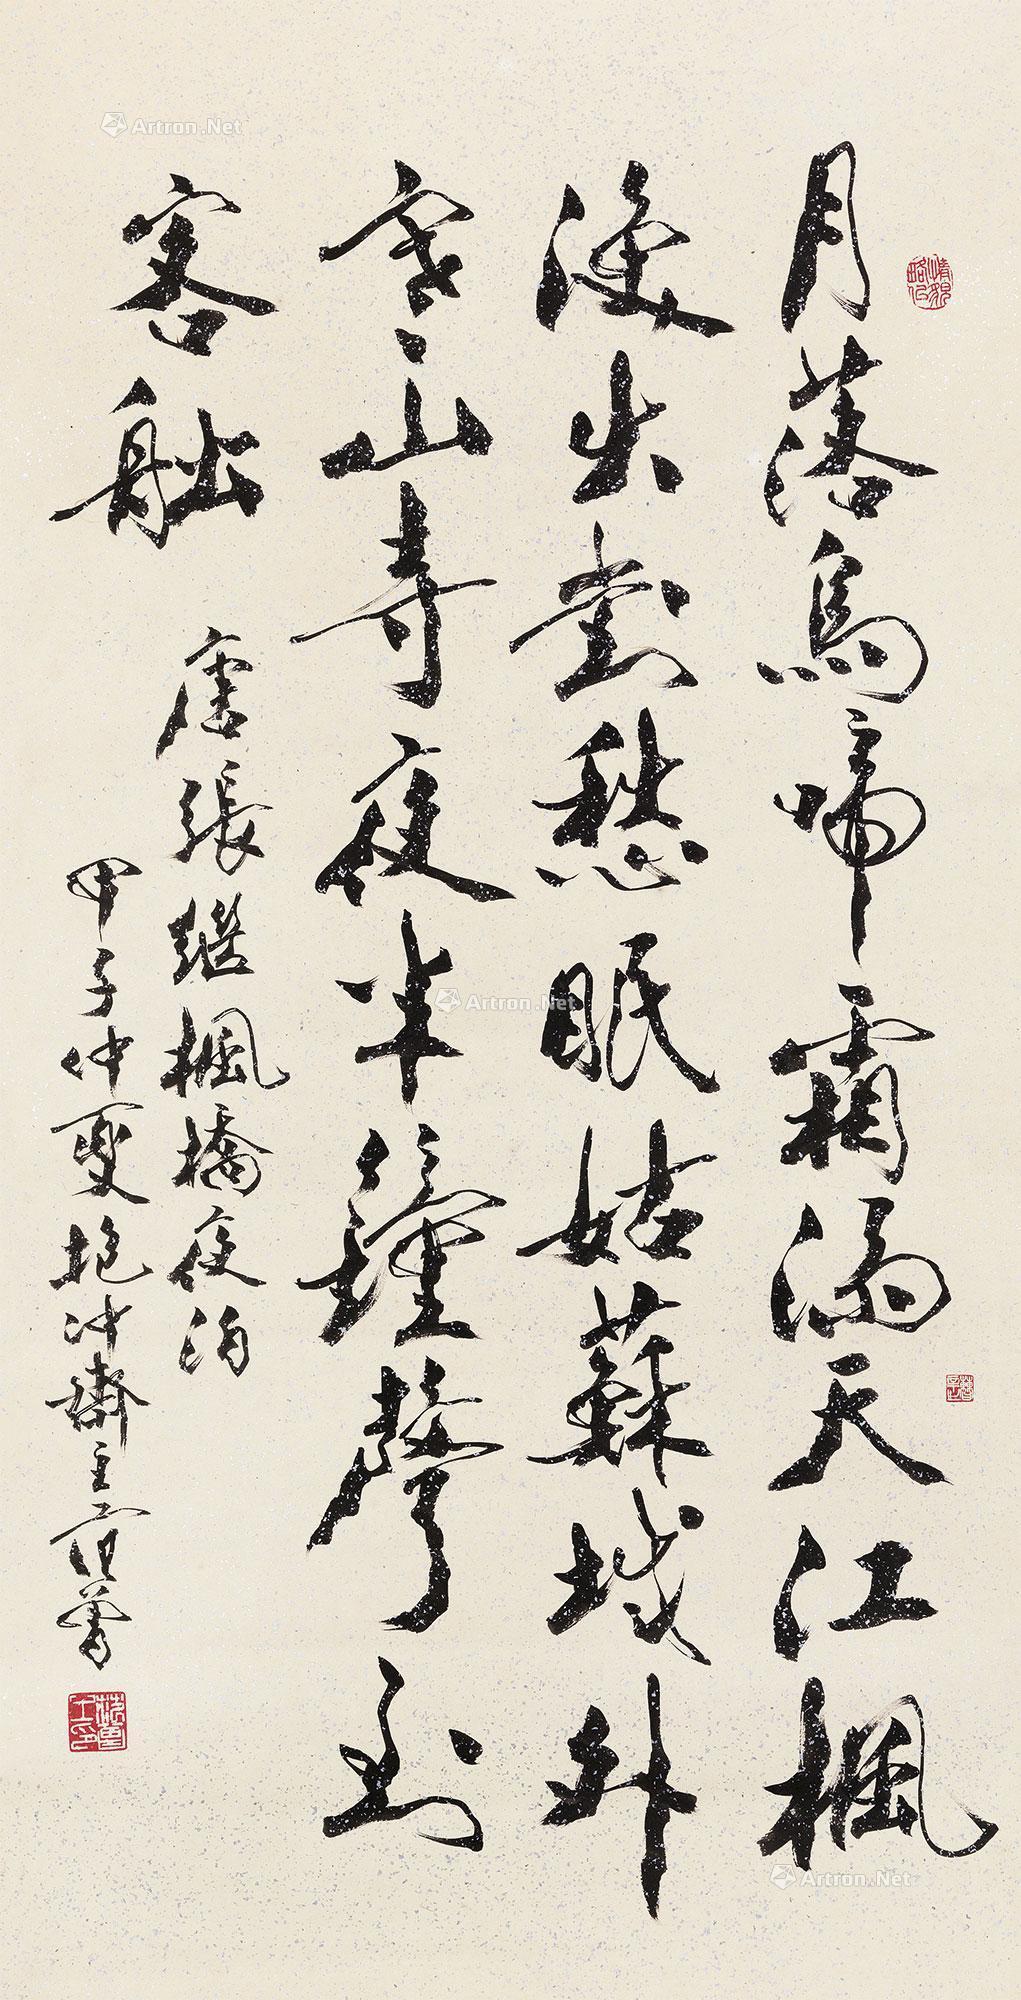 月落烏啼霜滿天江楓
漁火對愁眠姑蘇城外
寒山寺夜半鐘聲到
客船
唐張繼楓橋夜泊
甲子仲夏抱冲齋主范曾
Artron.Net
Artron.Net
Artron.Net